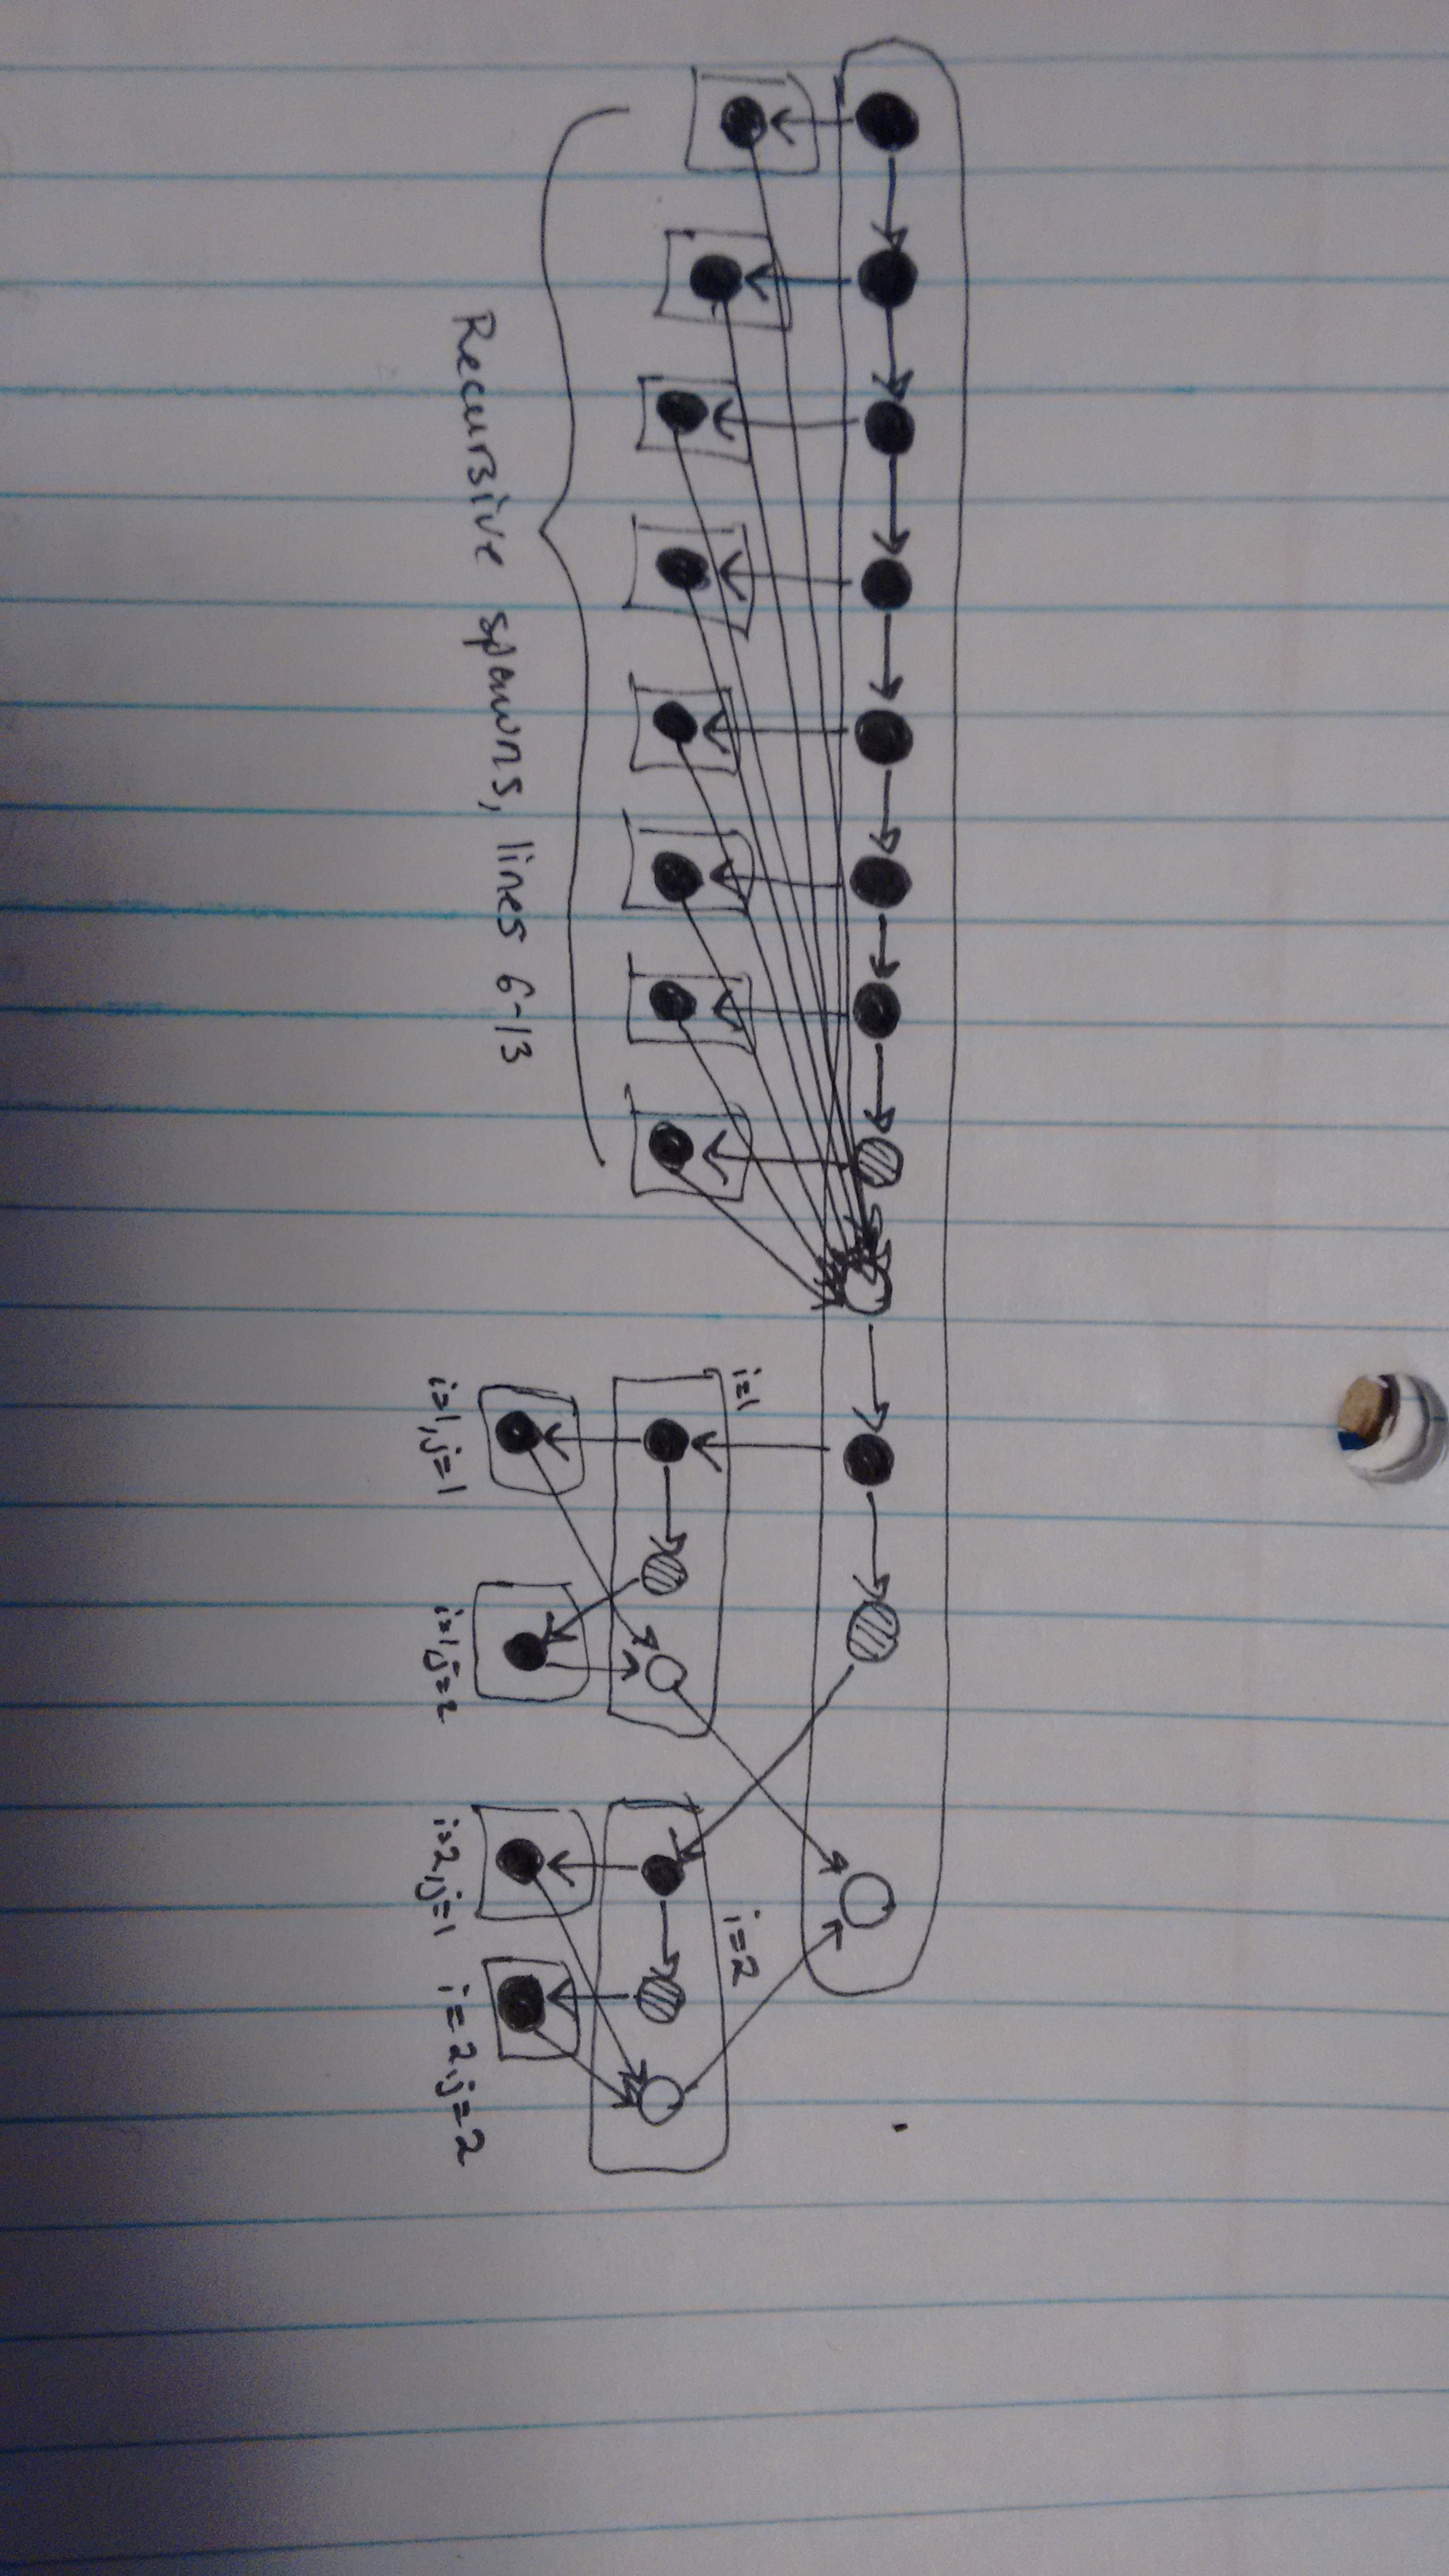 Recursive spawns, lines 6-13
i=1
i=1,j=1
i=1,j=2
i=2
i=2,j=1
i=2,j=2